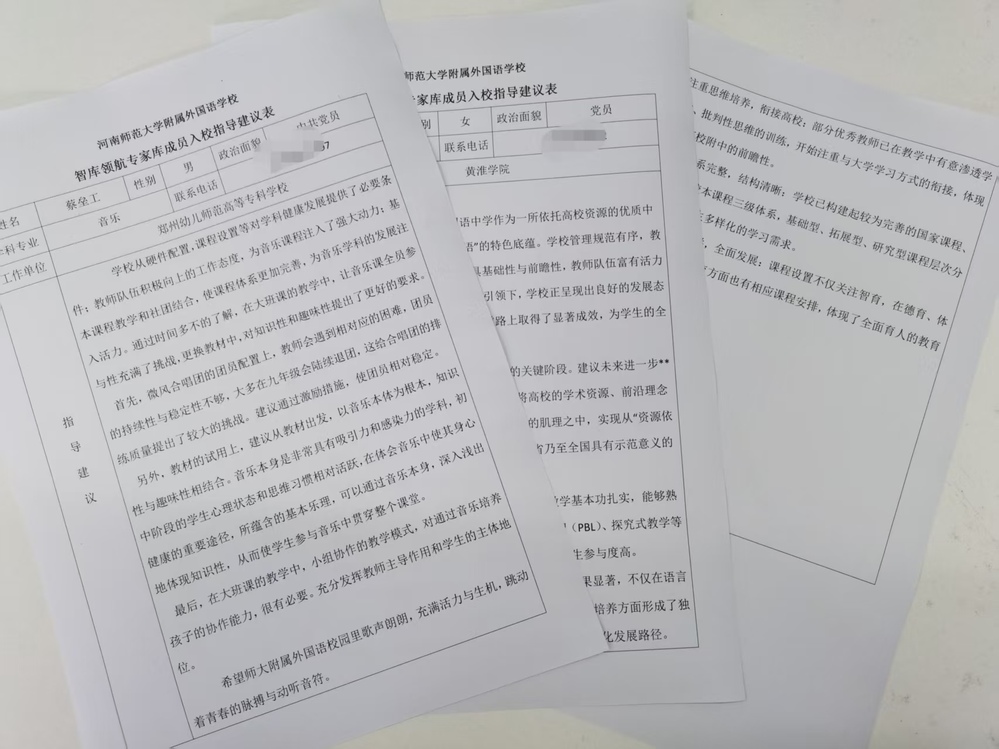 河南师范大学附属外国语学校
智库领航专家库成员入校指导建议表
姓名
蔡垒工
性别
男
政治面貌
中共党员
学科专业
音乐
联系电话
67
工作单位
郑州幼儿师范高等专科学校
指导建议
学校从硬件配置,课程设置等对学科健康发展提供了必要条
件;教师队伍积极向上的工作态度,为音乐课程注入了强大动力;基
本课程教学和社团结合,使课程体系更加完善,为音乐学科的发展注
入活力。通过时间多不的了解,在大班课的教学中,让音乐课全员参
与性充满了挑战,更换教材中,对知识性和趣味性提出了更好的要求。
首先,微风合唱团的团员配置上,教师会遇到相对应的困难,团员
的持续性与稳定性不够,大多在九年级会陆续退团,这给合唱团的排
练质量提出了较大的挑战。建议通过激励措施,使团员相对稳定。
另外,教材的试用上,建议从教材出发,以音乐本体为根本,知识
性与趣味性相结合。音乐本身是非常具有吸引力和感染力的学科,初
中阶段的学生心理状态和思维习惯相对活跃,在体会音乐中使其身心
健康的重要途径,所蕴含的基本乐理,可以通过音乐本身,深入浅出
地体现知识性,从而使学生参与音乐中贯穿整个课堂。
最后,在大班课的教学中,小组协作的教学模式,对通过音乐培养
孩子的协作能力,很有必要。充分发挥教师主导作用和学生的主体地
位。
希望师大附属外国语校园里歌声朗朗,充满活力与生机,跳动
着青春的脉搏与动听音符。
师范大学附属外国语学校
家库成员入校指导建议表
别
女
政治面貌
党员
联系电话
黄淮学院
国语中学作为一所依托高校资源的优质中
语”的特色底蕴。学校管理规范有序,教
具基础性与前瞻性,教师队伍富有活力
引领下,学校正呈现出良好的发展态
路上取得了显著成效,为学生的全
的关键阶段。建议未来进一步**
将高校的学术资源、前沿理念
的肌理之中,实现从“资源依
省乃至全国具有示范意义的
学基本功扎实,能够熟
(PBL)、探究式教学等
生参与度高。
果显著,不仅在语言
培养方面形成了独
化发展路径。
注重思维培养,衔接高校:部分优秀教师已在教学中有意渗透学
、批判性思维的训练,开始注重与大学学习方式的衔接,体现
高校附中的前瞻性。
系完整,结构清晰:学校已构建起较为完善的国家课程、
校本课程三级体系,基础型、拓展型、研究型课程层次分
生多样化的学习需求。
,全面发展:课程设置不仅关注智育,在德育、体
方面也有相应课程安排,体现了全面育人的教育